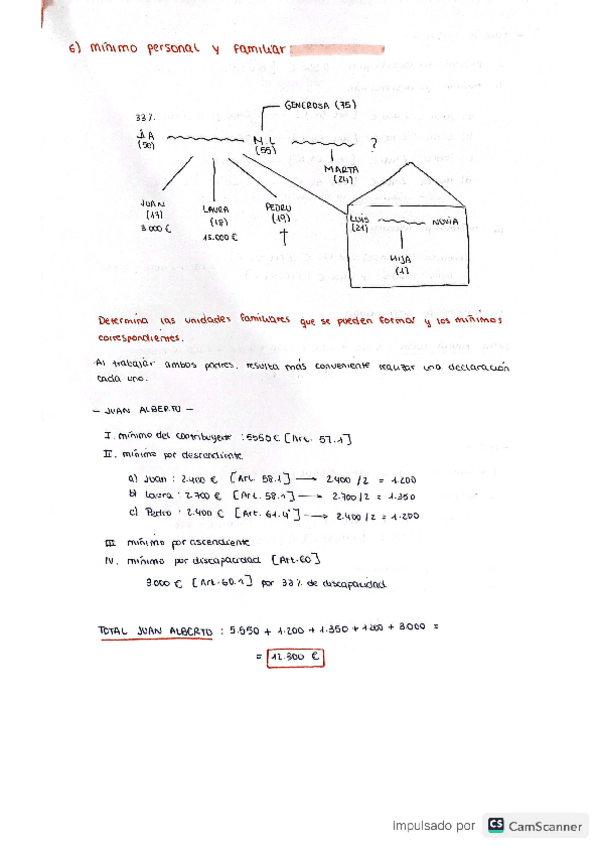 6) mínimo personal y familiar
GENEROSA (75)
33%
J.A
(50)
M.L
(55)
?
MARTA
(24)
JUAN
(17)
3.000 €
LAURA
(18)
15.000 €
PEDRO
(19)
†
LUIS
(21)
NOVIA
HIJA
(1)
Determina las unidades familiares que se pueden formar y los mínimos
correspondientes.
Al trabajar ambos padres, resulta más conveniente realizar una declaración
cada uno.
- JUAN ALBERTO -
I. mínimo del contribuyente : 5550 € [Art. 57.1]
II. mínimo por descendiente
a) Juan : 2.400 € [Art. 58.1] → 2.400 /2 = 1.200
b) Laura : 2.700 € [Art. 58.1] → 2.700 /2 = 1.350
c) Pedro : 2.400 € [Art. 61.4ª] → 2.400 /2 = 1.200
III mínimo por ascendiente
IV. mínimo por discapacidad [Art.60]
3000 € [Art.60.1] por 33% de discapacidad
TOTAL JUAN ALBERTO : 5.550 + 1.200 + 1.350 + 1.200 + 3000 =
= 12.300 €
Impulsado por CS CamScanner